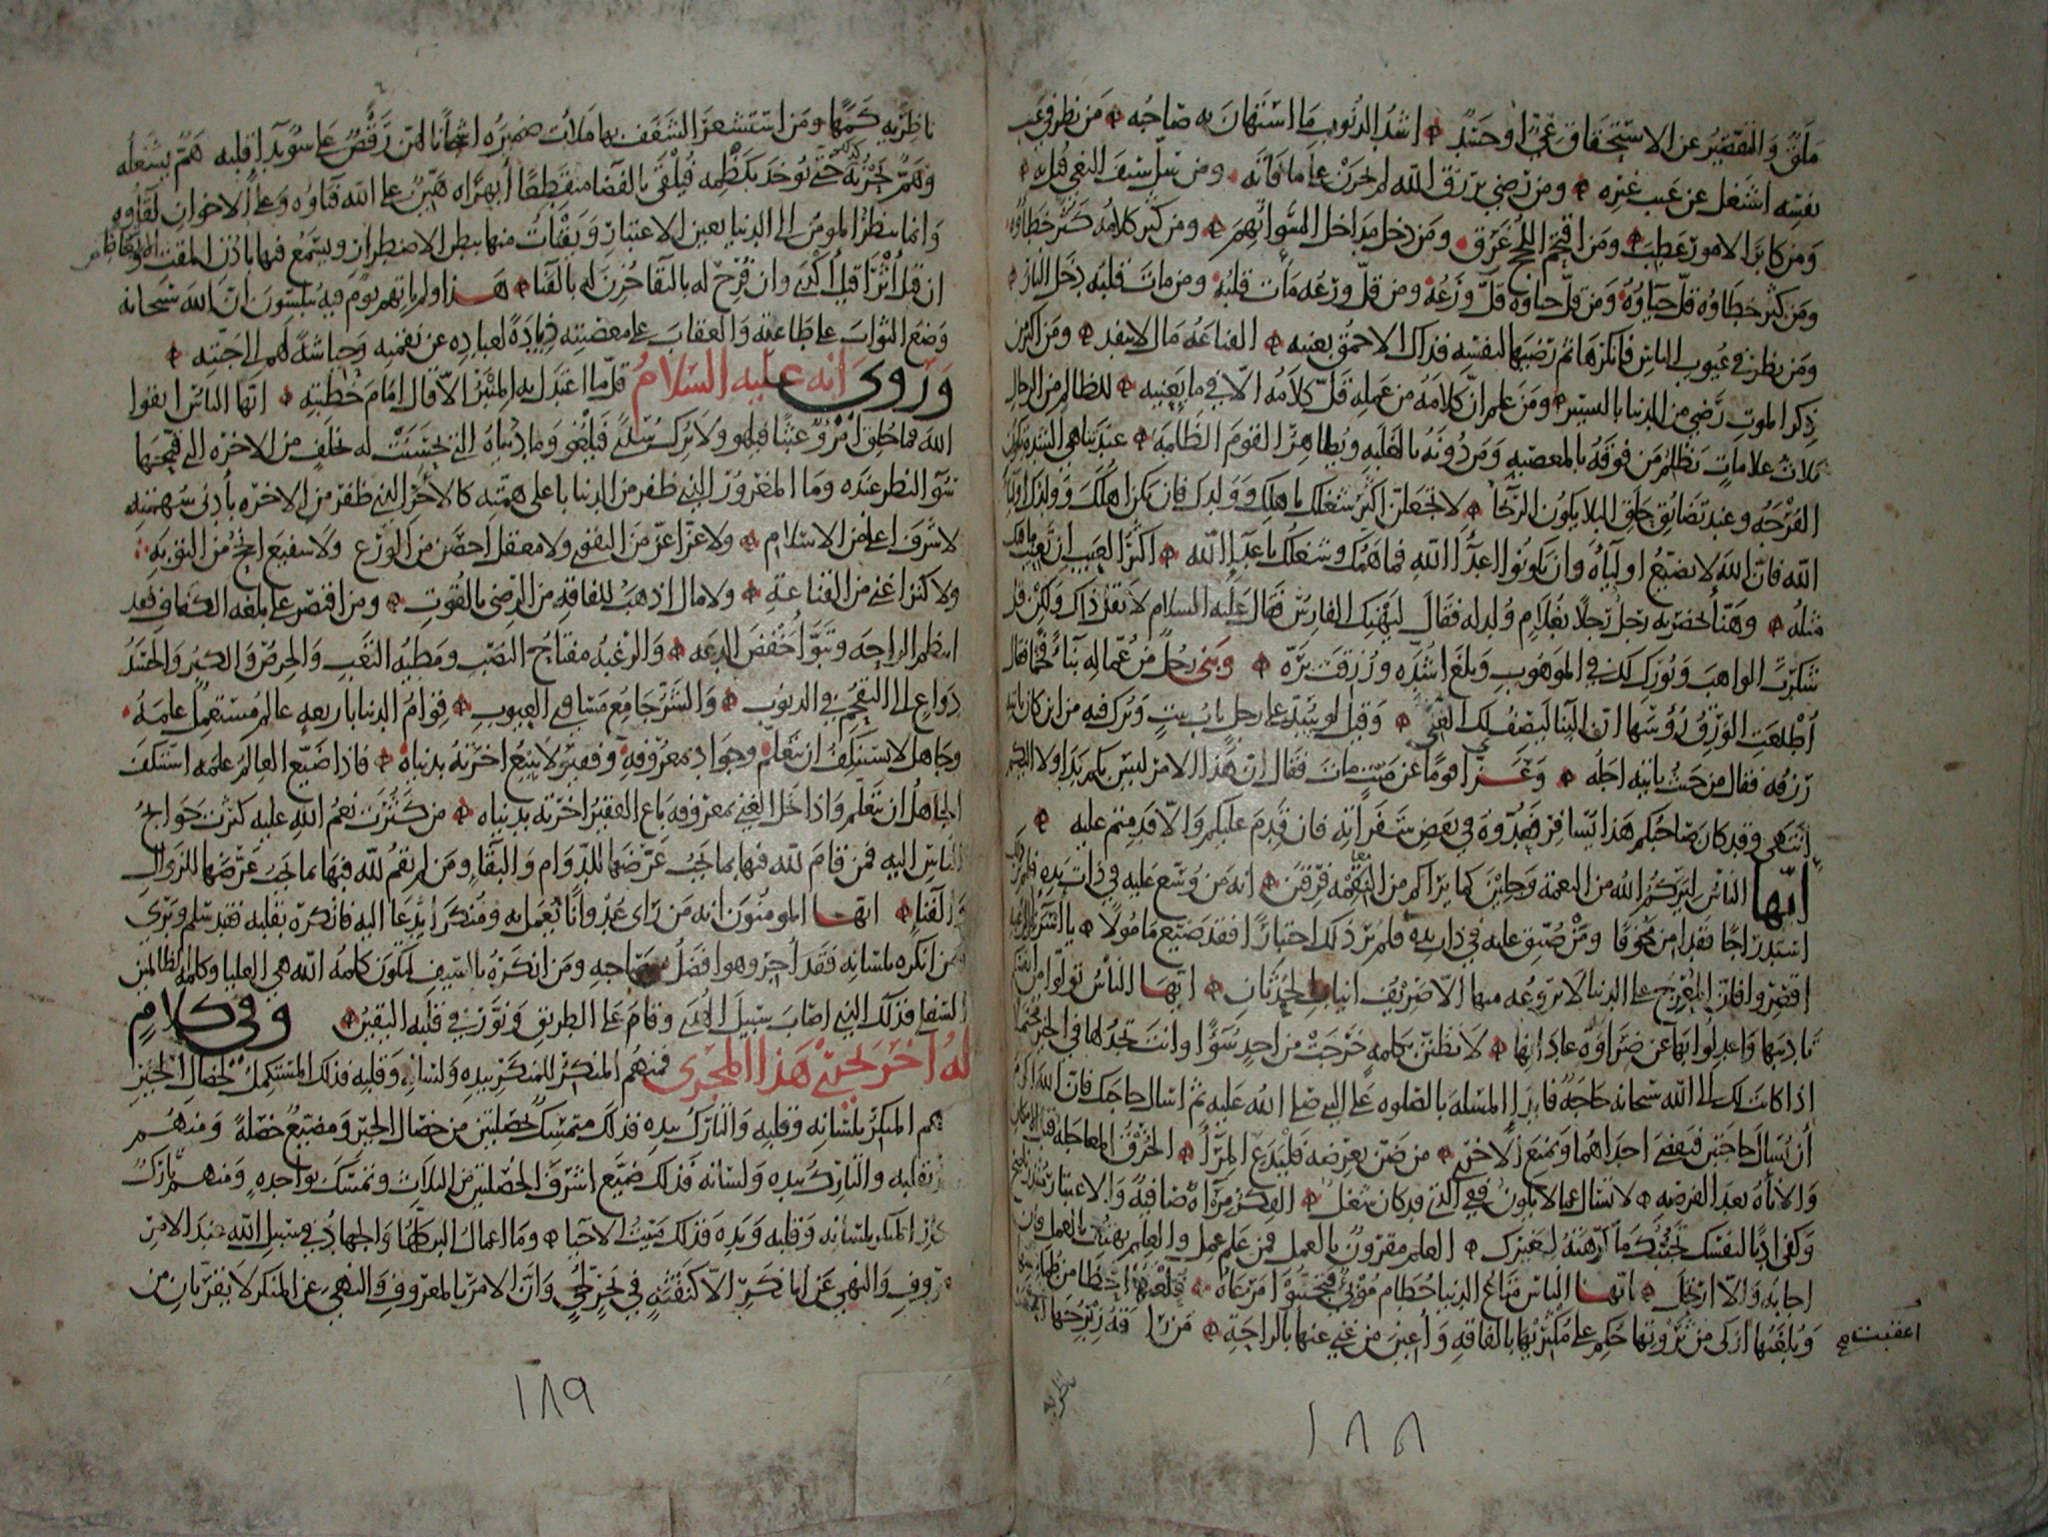 ملق والتقصير عن الاستحقاق عي او حسد اشد الذنوب ما استهان به صاحبه من نظر في عيب
نفسه اشتغل عن عيب غيره ومن رضي برزق الله لم يحزن على ما فاته ومن سل سيف البغي قتل به
ومن كابد الامور عطب ومن اقتحم اللجج غرق ومن دخل مداخل السوء اتهم ومن كثر كلامه كثر خطاؤه
ومن كثر خطاؤه قل حياؤه ومن قل حياؤه قل ورعه ومن قل ورعه مات قلبه ومن مات قلبه دخل النار
ومن نظر في عيوب الناس فانكرها ثم رضيها لنفسه فذاك الاحمق بعينه القناعة مال لا ينفد ومن اكثر من
ذكر الموت رضي من الدنيا باليسير ومن علم ان كلامه من عمله قل كلامه الا في ما يعنيه للظالم من الرجال
ثلاث علامات يظلم من فوقه بالمعصية ومن دونه بالغلبة ويظاهر القوم الظلمة عند تناهي الشدة تكون
الفرجة وعند تضائق حلق البلا يكون الرخا لا تجعلن اكثر شغلك باهلك وولدك فان يكن اهلك وولدك اوليا
الله فان الله لا يضيع اولياه وان يكونوا اعدا الله فما همك وشغلك باعدا الله اكبر العيب ان تعيب ما فيك
مثله وهنأ بحضرته رجل رجلا بغلام ولد له فقال ليهنك الفارس فقال عليه السلام لا تقل ذاك ولكن قل
شكرت الواهب وبورك لك في الموهوب وبلغ اشده ورزقت بره وبنى رجل من عماله بناء فخما فقال
اطلعت الورق رؤسها ان البنا ليصف لك الغنى وقيل له لو سد على رجل باب بيت وترك فيه من اين كان ياتيه
رزقه فقال من حيث ياتيه اجله وعزا قوما عن ميت مات فقال ان هذا الامر ليس بكم بدا ولا اليكم
انتهى وقد كان صاحبكم هذا يسافر فعدوه في بعض سفراته فان قدم عليكم والا قدمتم عليه
ايها الناس ليركم الله من النعمة وجلين كما يراكم من النقمة فرقين انه من وسع عليه في ذات يده فلم ير ذلك
استدراجا فقد امن مخوفا ومن ضيق عليه في ذات يده فلم ير ذلك اختبارا فقد ضيع مامولا يا اسرى الرغبة
اقصروا فان المعرج على الدنيا لا تروعه منها الا صريف انياب الحدثان ايها الناس تولوا من انفسكم
تاديبها واعدلوا بها عن ضراوة عاداتها لا تظنن بكلمة خرجت من احد سوءا وانت تجد لها في الخير محتملا
اذا كانت لك الى الله سبحانه حاجة فابدا المسئلة بالصلوة على النبي صلى الله عليه ثم اسال حاجتك فان الله اكرم
ان يسال حاجتين فيقضي احداهما ويمنع الاخرى من ضن بعرضه فليدع المرا الخرق المعاجلة قبل الامكان
والاناة بعد الفرصة لا تسال عما لا يكون ففي الذي قد كان شغل الفكر مراة صافية والاعتبار منذر ناصح
وكفى ادبا لنفسك تجنبك ما كرهته لغيرك العلم مقرون بالعمل فمن علم عمل والعلم يهتف بالعمل فان
اجابه والا ارتحل ايها الناس متاع الدنيا حطام موبئ فتجنبوا مرعاه قلعتها احظى من طمانينتها
وبلغتها ازكى من ثروتها حكم على مكثر بها بالفاقة واعين من غني عنها بالراحة من راقه زبرجها
اعقبت صح
ناظريه
١٨٨
ناظريه كمها ومن استشعر الشغف بها ملأت ضميره اشجانا لهن رقص على سويدا قلبه هم يشغله
وهم يحزنه كذلك حتى يوخذ بكظمه فيلقى بالفضا منقطعا ابهراه هينا على الله فناؤه وعلى الاخوان لقاؤه
وانما ينظر المومن الى الدنيا بعين الاعتبار ويقتات منها ببطن الاضطرار ويسمع فيها باذن المقت والابغاض
ان قيل اثرى قيل اكدى وان فرح له بالبقا حزن له بالفنا هذا ولم ياتهم يوم فيه يبلسون ان الله سبحانه
وضع الثواب على طاعته والعقاب على معصيته ذيادة لعباده عن نقمته وحياشة لهم الى جنته
وروي انه عليه السلام قل ما اعتدل به المنبر الا قال امام خطبته ايها الناس اتقوا
الله فما خلق امرؤ عبثا فيلهو ولا ترك سدى فيلغو وما دنياه التي تحسنت له بخلف من الاخرة التي قبحها
سوء النظر عنده وما المغرور الذي ظفر من الدنيا باعلى همته كالاخر الذي ظفر من الاخرة بادنى سهمته
لا شرف اعلى من الاسلام ولا عز اعز من التقوى ولا معقل احصن من الورع ولا شفيع انجح من التوبة
ولا كنز اغنى من القناعة ولا مال اذهب للفاقة من الرضى بالقوت ومن اقتصر على بلغة الكفاف فقد
انتظم الراحة وتبوأ خفض الدعة والرغبة مفتاح النصب ومطية التعب والحرص والكبر والحسد
دواع الى التقحم في الذنوب والشر جامع مساوي العيوب قوام الدنيا باربعة عالم مستعمل علمه
وجاهل لا يستنكف ان يتعلم وجواد بمعروفه وفقير لا يبيع اخرته بدنياه فاذا ضيع العالم علمه استنكف
الجاهل ان يتعلم واذا بخل الغني بمعروفه باع الفقير اخرته بدنياه من كثرت نعم الله عليه كثرت حوائج
الناس اليه فمن قام لله فيها بما يجب عرضها للدوام والبقا ومن لم يقم لله فيها بما يجب عرضها للزوال
والفنا ايها المومنون انه من راى عدوانا يعمل به ومنكرا يدعا اليه فانكره بقلبه فقد سلم وبرئ
ومن انكره بلسانه فقد اجر وهو افضل من صاحبه ومن انكره بالسيف لتكون كلمة الله هي العليا وكلمة الظالمين
السفلى فذلك الذي اصاب سبيل الهدى وقام على الطريق ونور في قلبه اليقين وفي كلام
له آخر يجري هذا المجرى فمنهم المنكر للمنكر بيده ولسانه وقلبه فذلك المستكمل لخصال الخير
ومنهم المنكر بلسانه وقلبه والتارك بيده فذلك متمسك بخصلتين من خصال الخير ومضيع خصلة ومنهم
المنكر بقلبه والتارك بيده ولسانه فذلك ضيع اشرف الخصلتين من الثلاث وتمسك بواحدة ومنهم تارك
لانكار المنكر بلسانه وقلبه ويده فذلك ميت الاحيا وما اعمال البر كلها والجهاد في سبيل الله عند الامر
بالمعروف والنهي عن المنكر الا كنفثة في بحر لجي وان الامر بالمعروف والنهي عن المنكر لا يقربان من
١٨٩